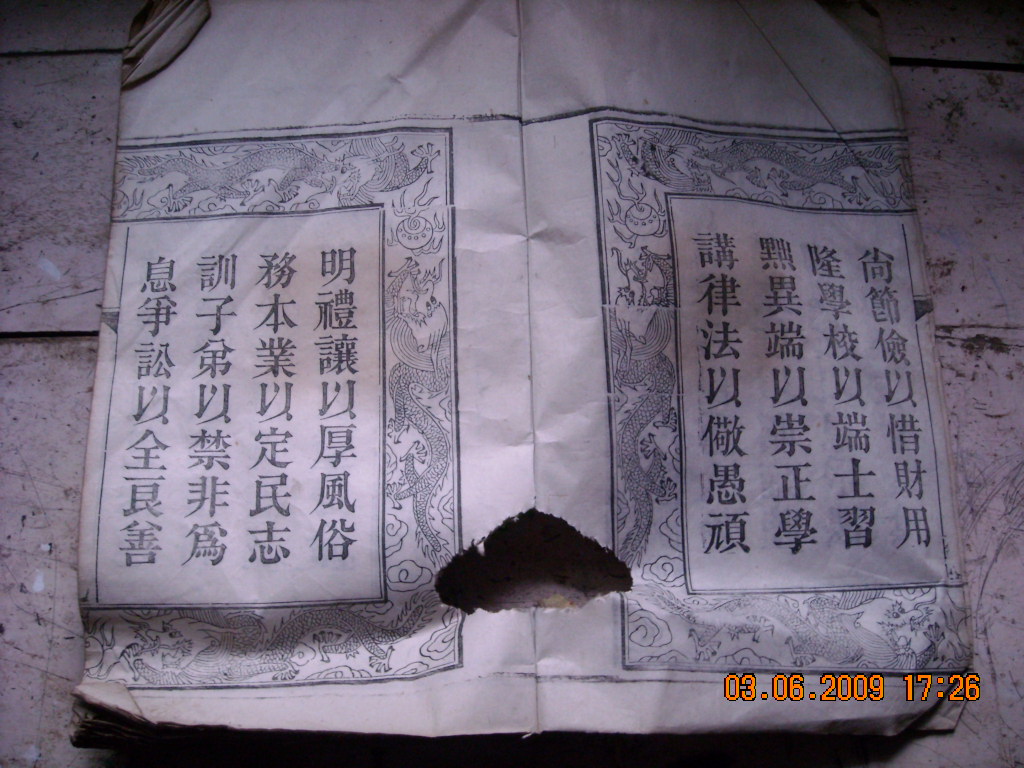 尚節儉以惜財用
隆學校以端士習
黜異端以崇正學
講律法以儆愚頑
明禮讓以厚風俗
務本業以定民志
訓子弟以禁非爲
息爭訟以全良善
03.06.2009 17:26